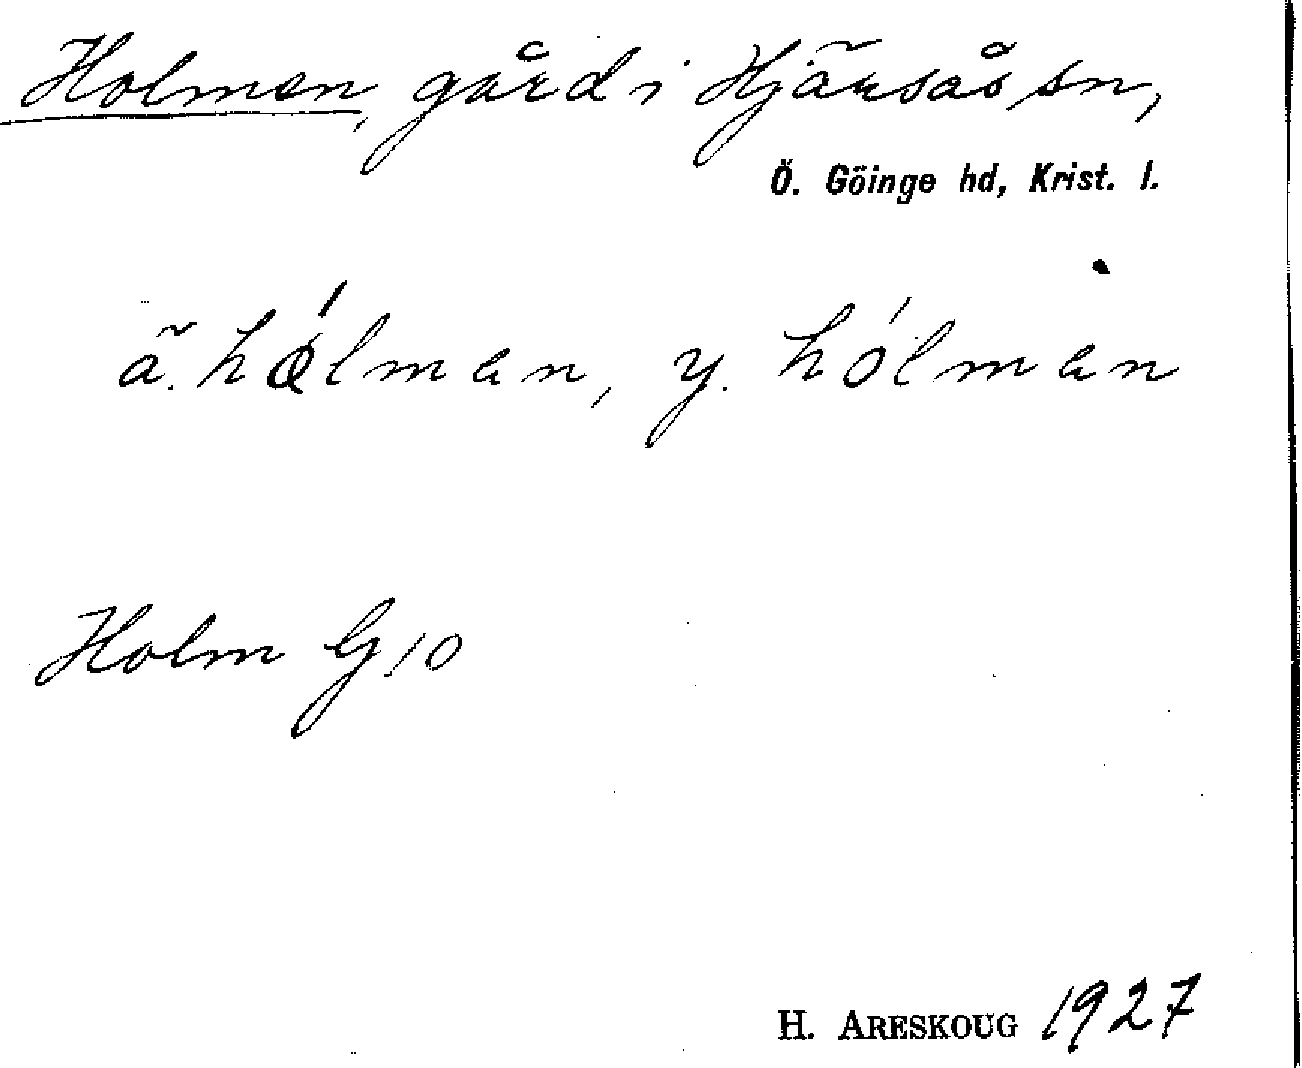 Holmen, gård i Hjärsås sn,
Ö. Göinge hd, Krist. l.
ä. hólmen, y. hólmen
Holm G10
H. ARESKOUG 1927